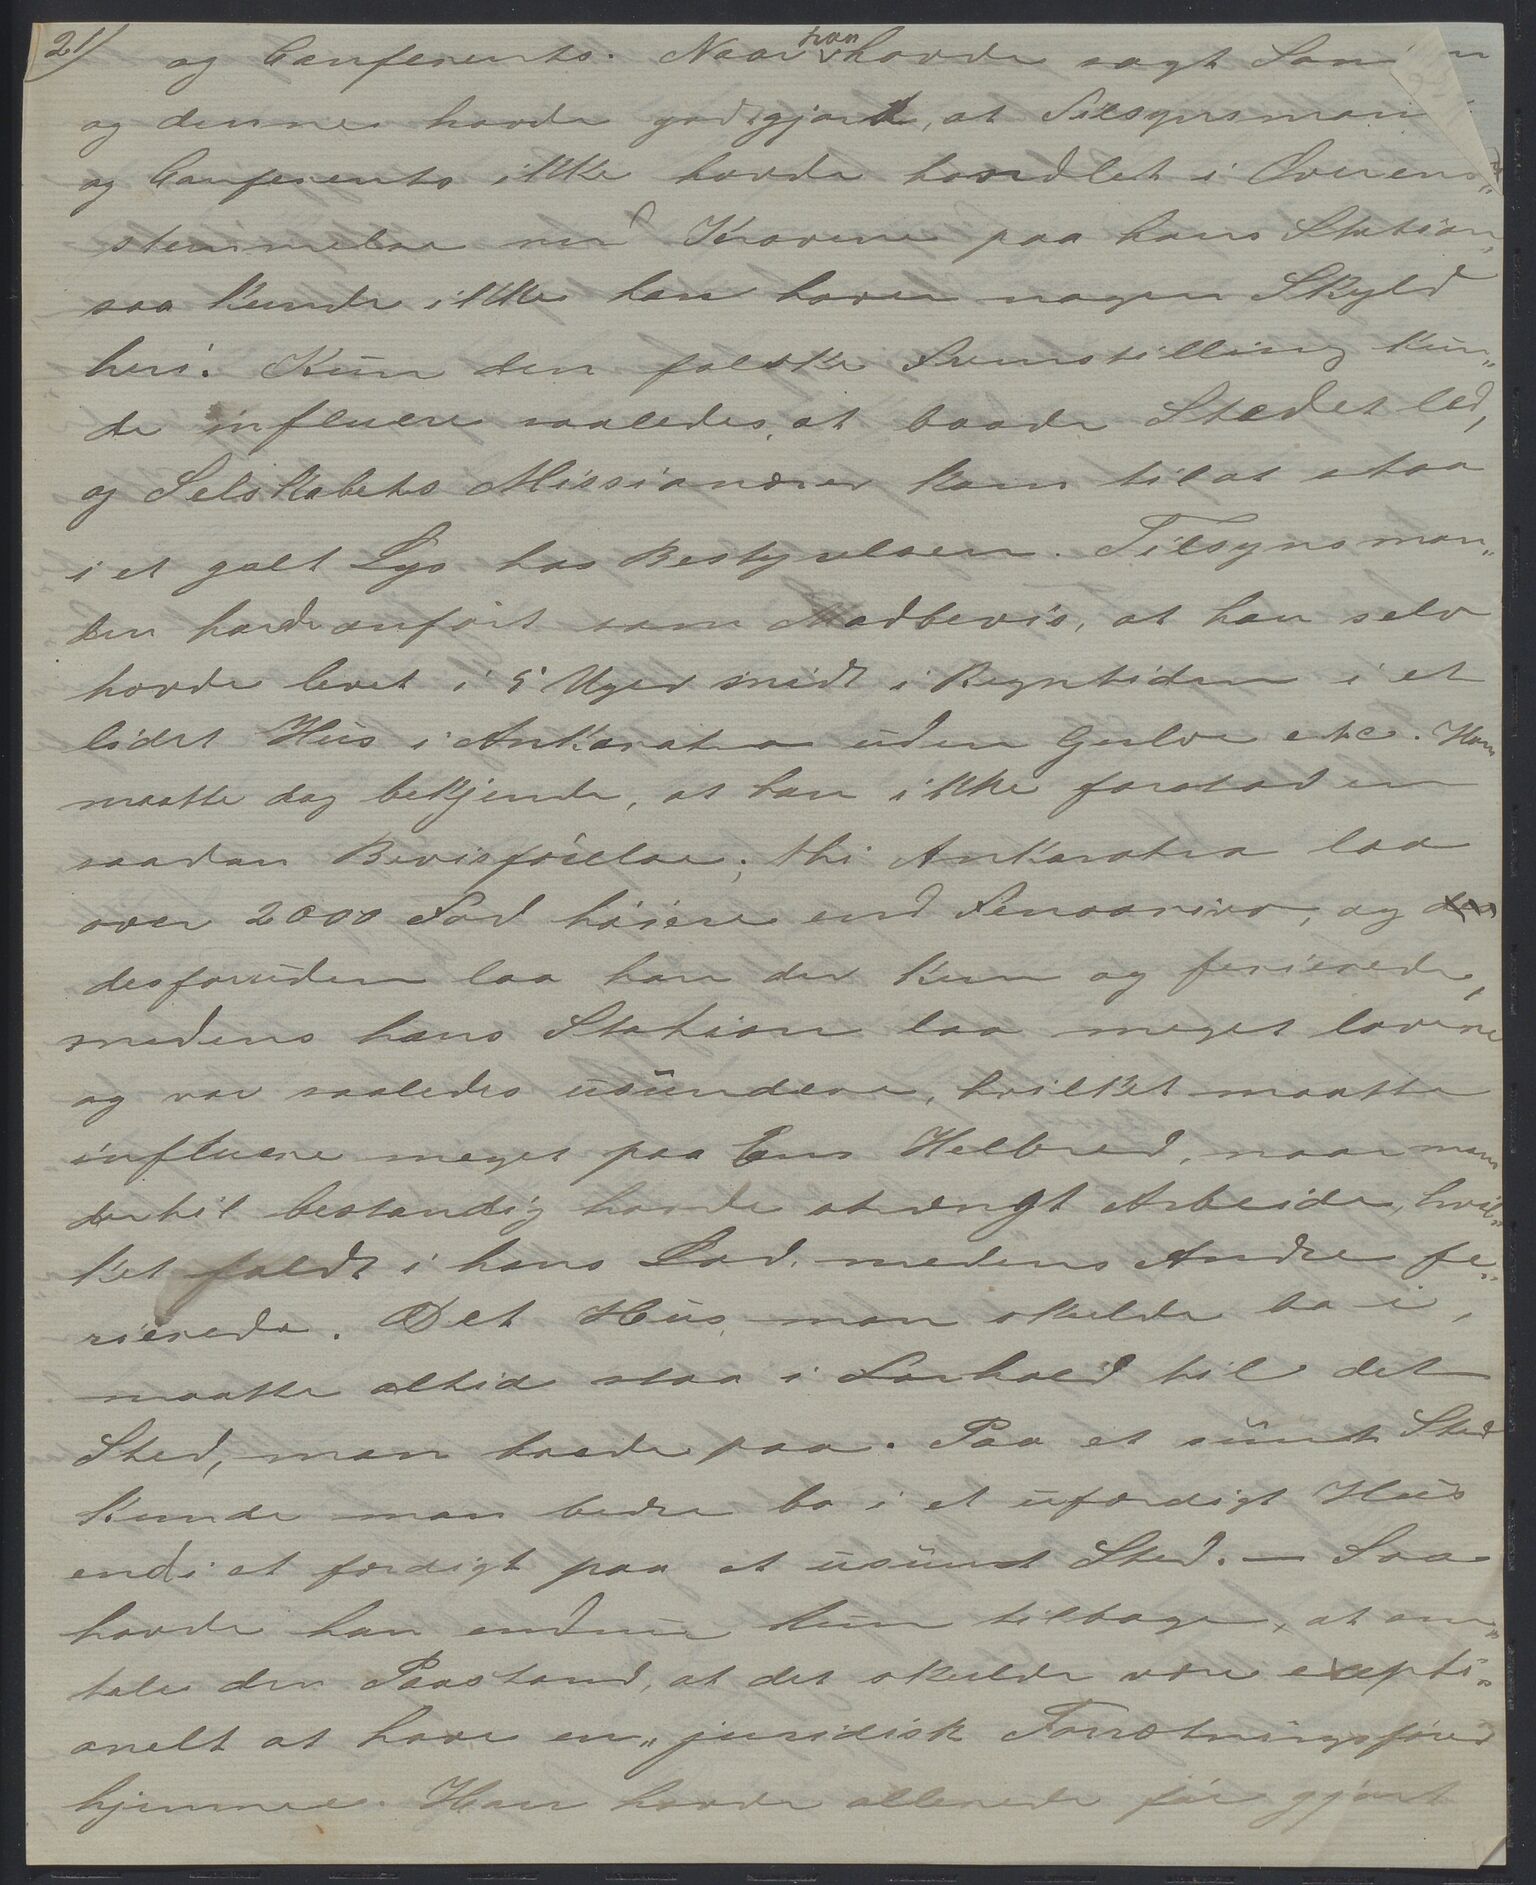 21/
og Conferents. Naar han havde sagt
og denne havde godtgjort, at Tilsynsman
og Conferents ikke havde handlet i Overens„
stemmelse med Kravene paa hans Station,
saa kunde ikke han have nogen Skyld
heri. Kun den falske Fremstilling kun„
de influere saaledes, at baade Stedet led,
og Selskabets Missionærer kom til at staa
i et galt Lys hos Bestyrelsen. Tilsynsman„
den havde anført som Modbevis, at han selv
havde levet i 5 Uger midt i Regntiden i et
lidet Hus i Ankaratra uden Gulve etc. Han
maatte dog bekjende, at han ikke forstod en
saadan Bevisførelse; thi Ankaratra laa
over 2000 Fod høiere end Fenoarivo, og
desforuden laa han der kun og ferierede,
medens hans Station laa meget lavere
og var saaledes usundere, hvilket maatte
influere meget paa Ens Helbred, naar man
dertil bestandig havde strængt Arbeide, hvil„
ket faldt i hans Lod, medens Andre fe„
rierede. Det Hus man skulde bo i,
maatte altid staa i Forhold til det
Sted, man boede paa. Paa et sundt Sted
kunde man bedre bo i et ufærdigt Hus
end i et færdigt paa et usundt Sted. — Saa
havde han endnu kun tilbage, at om„
tale den Paastand, at det skulde være exepti„
onelt at have en „juridisk Forretningsfører
hjemme. Han havde allerede før gjort